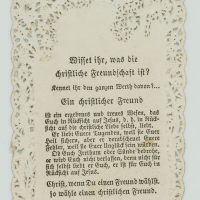 Wisset ihr, was die
christliche Freundschaft ist?
Kennet ihr den ganzen Werth davon?..
Ein christlicher Freund
ist ein ergebenes und treues Wesen, das
Euch in Rücksicht auf Jesus, d. h. in Rück-
sicht auf die christliche Liebe selbst, liebt.
Er liebt Eurer Tugenden, weil sie Euer
Heil sichern, aber er verabscheuet Eurer
Fehler, weil sie Euer Unglück sein würden.
Ob Euch Irrthum oder Sünde bewohne,
er wird Euch nicht verlassen, denn nicht für
sich selbst liebt er Euch, er ist für Euch in
Rücksicht auf Jesus.
Christ, wenn Du einen Freund wählst,
so wähle einen christlichen Freund.